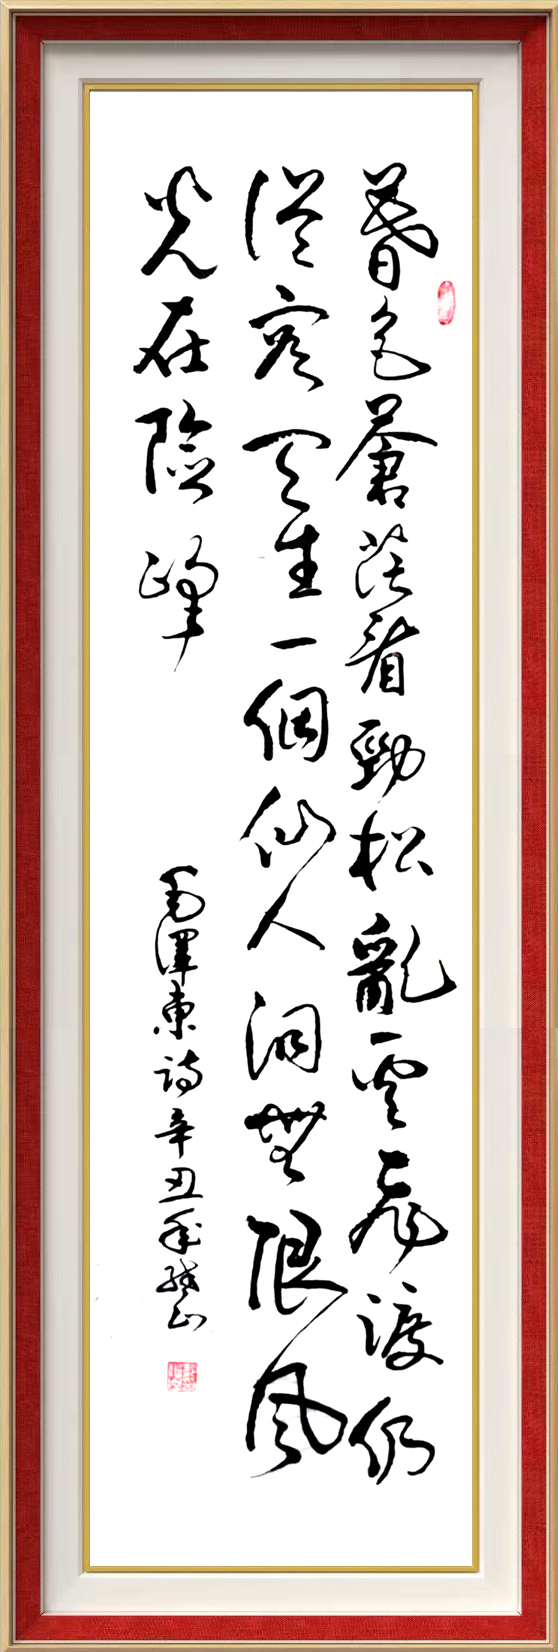 暮色蒼茫看勁松亂雲飛渡仍
從容天生一個仙人洞無限風
光在險峰
毛澤東詩辛丑年